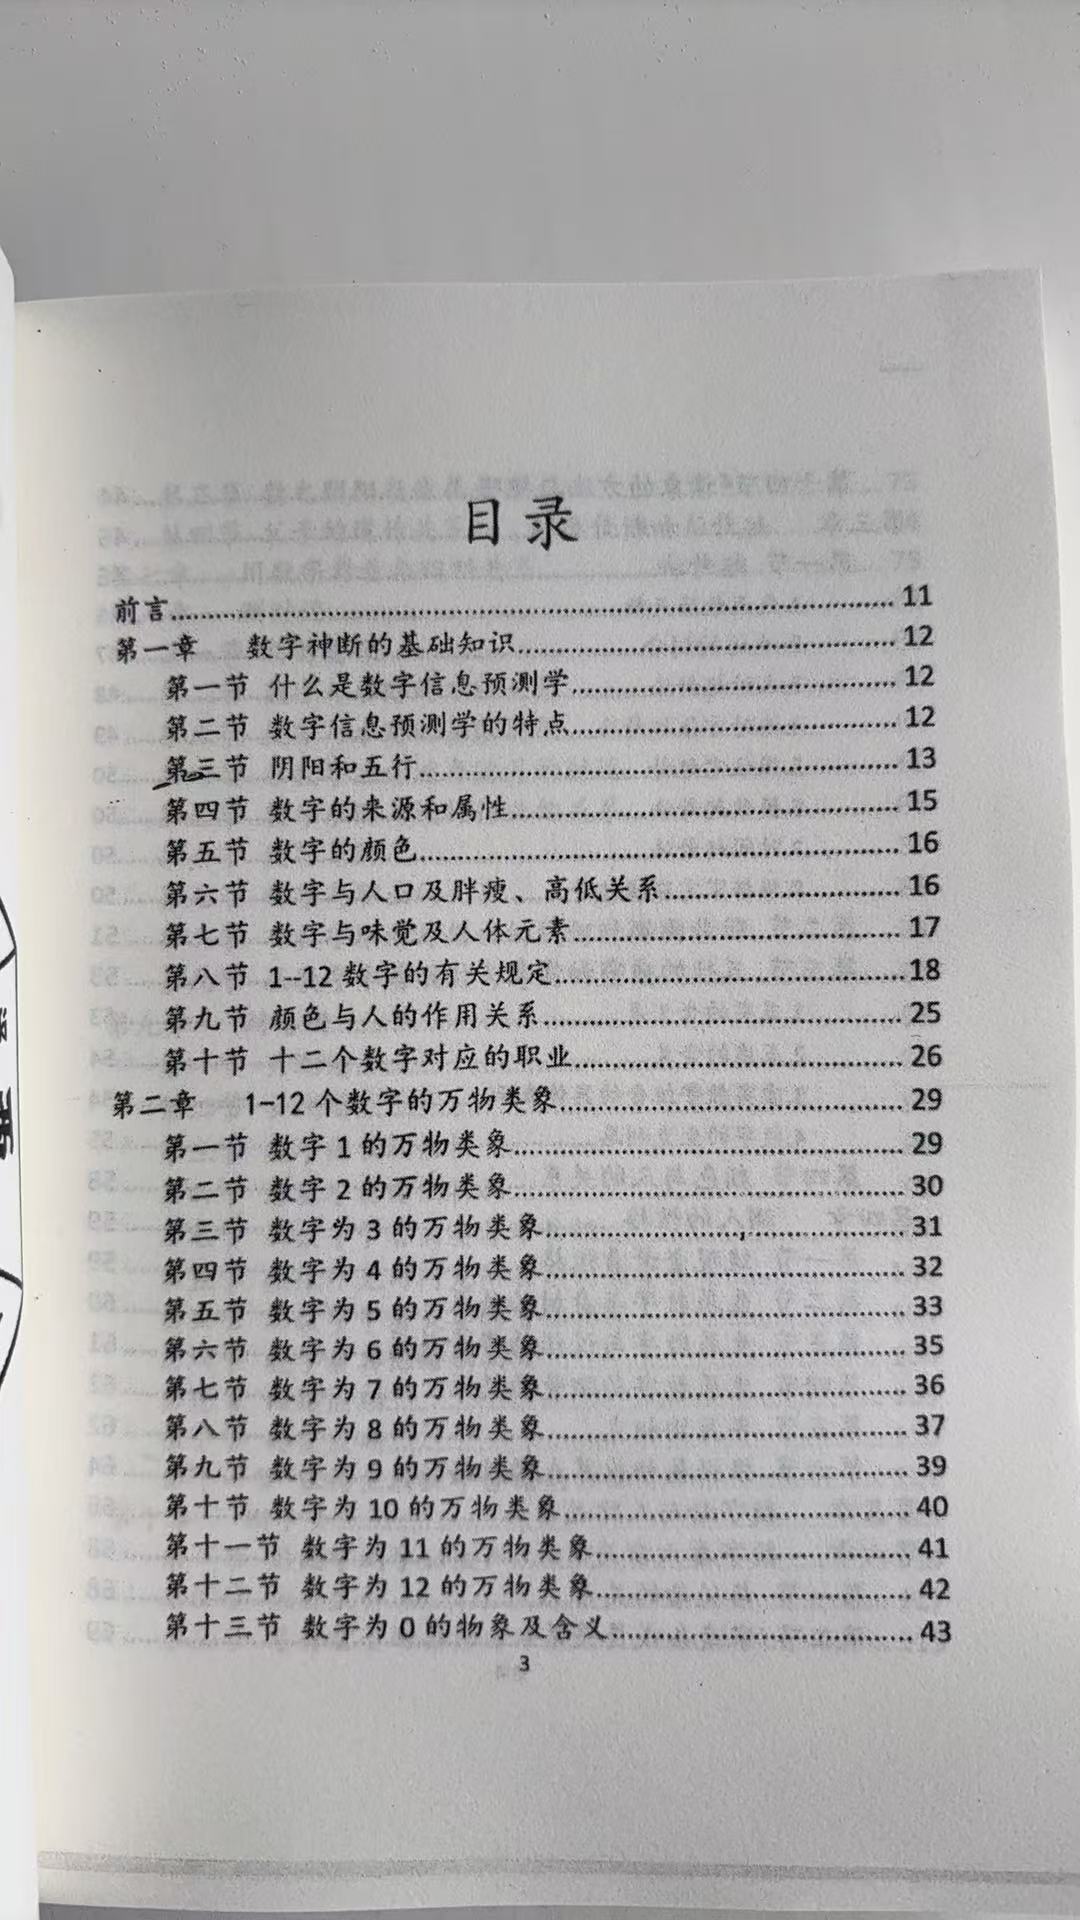 目录
前言........................................ 11
第一章 数字神断的基础知识........................................ 12
第一节 什么是数字信息预测学........................................ 12
第二节 数字信息预测学的特点........................................ 12
第三节 阴阳和五行........................................ 13
第四节 数字的来源和属性........................................ 15
第五节 数字的颜色........................................ 16
第六节 数字与人口及胖瘦、高低关系........................................ 16
第七节 数字与味觉及人体元素........................................ 17
第八节 1--12数字的有关规定........................................ 18
第九节 颜色与人的作用关系........................................ 25
第十节 十二个数字对应的职业........................................ 26
第二章 1-12个数字的万物类象........................................ 29
第一节 数字1的万物类象........................................ 29
第二节 数字2的万物类象........................................ 30
第三节 数字为3的万物类象........................................ 31
第四节 数字为4的万物类象........................................ 32
第五节 数字为5的万物类象........................................ 33
第六节 数字为6的万物类象........................................ 35
第七节 数字为7的万物类象........................................ 36
第八节 数字为8的万物类象........................................ 37
第九节 数字为9的万物类象........................................ 39
第十节 数字为10的万物类象........................................ 40
第十一节 数字为11的万物类象........................................ 41
第十二节 数字为12的万物类象........................................ 42
第十三节 数字为0的物象及含义........................................ 43
3